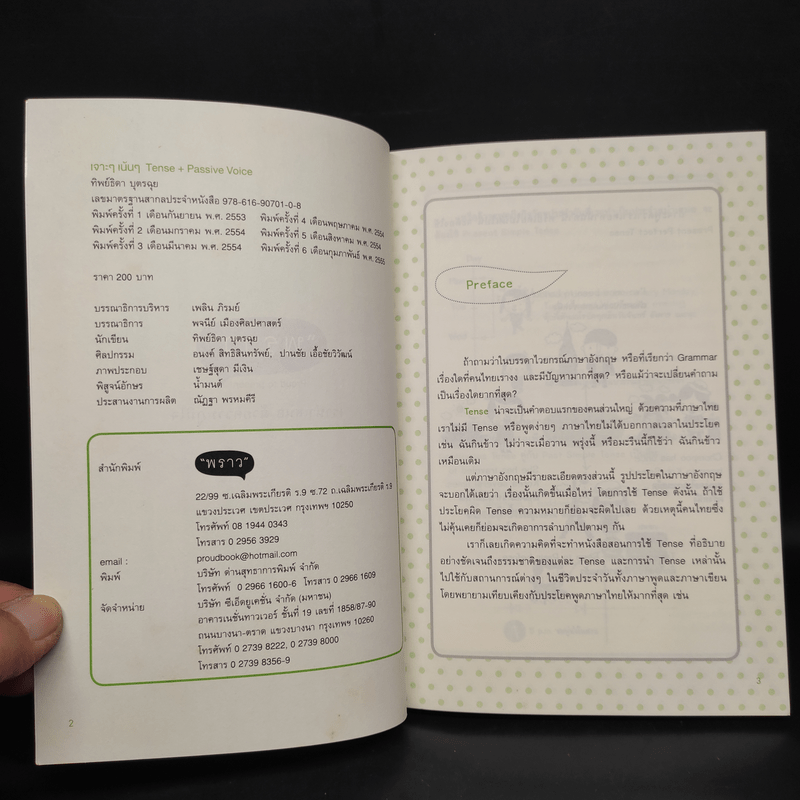 เจาะๆ เน้นๆ Tense + Passive Voice
ทิพย์ธิดา บุตรฉุย
เลขมาตรฐานสากลประจำหนังสือ 978-616-90701-0-8
พิมพ์ครั้งที่ 1 เดือนกันยายน พ.ศ. 2553 พิมพ์ครั้งที่ 4 เดือนพฤษภาคม พ.ศ. 2554
พิมพ์ครั้งที่ 2 เดือนมกราคม พ.ศ. 2554 พิมพ์ครั้งที่ 5 เดือนสิงหาคม พ.ศ. 2554
พิมพ์ครั้งที่ 3 เดือนมีนาคม พ.ศ. 2554 พิมพ์ครั้งที่ 6 เดือนกุมภาพันธ์ พ.ศ. 2555
ราคา 200 บาท
บรรณาธิการบริหาร เพลิน ภิรมย์
บรรณาธิการ พจนีย์ เมืองศิลปศาสตร์
นักเขียน ทิพย์ธิดา บุตรฉุย
ศิลปกรรม อนงค์ สิทธิสินทรัพย์, ปานชัย เอื้อชัยวิวัฒน์
ภาพประกอบ เชษฐ์สุดา มีเงิน
พิสูจน์อักษร น้ำมนต์
ประสานงานการผลิต ณัฏฐา พรหมคีรี
สำนักพิมพ์ "พราว"
22/99 ซ.เฉลิมพระเกียรติ ร.9 ซ.72 ถ.เฉลิมพระเกียรติ ร.9
แขวงประเวศ เขตประเวศ กรุงเทพฯ 10250
โทรศัพท์ 08 1944 0343
โทรสาร 0 2956 3929
email : proudbook@hotmail.com
พิมพ์ บริษัท ด่านสุทธาการพิมพ์ จำกัด
โทรศัพท์ 0 2966 1600-6 โทรสาร 0 2966 1609
จัดจำหน่าย บริษัท ซีเอ็ดยูเคชั่น จำกัด (มหาชน)
อาคารเนชั่นทาวเวอร์ ชั้นที่ 19 เลขที่ 1858/87-90
ถนนบางนา-ตราด แขวงบางนา กรุงเทพฯ 10260
โทรศัพท์ 0 2739 8222, 0 2739 8000
โทรสาร 0 2739 8356-9
2
Preface
ถ้าถามว่าในบรรดาไวยกรณ์ภาษาอังกฤษ หรือที่เรียกว่า Grammar
เรื่องใดที่คนไทยเรางง และมีปัญหามากที่สุด? หรือแม้ว่าจะเปลี่ยนคำถาม
เป็นเรื่องใดยากที่สุด?
Tense น่าจะเป็นคำตอบแรกของคนส่วนใหญ่ ด้วยความที่ภาษาไทย
เราไม่มี Tense หรือพูดง่ายๆ ภาษาไทยไม่ได้บอกกาลเวลาในประโยค
เช่น ฉันกินข้าว ไม่ว่าจะเมื่อวาน พรุ่งนี้ หรือมะรืนนี้ก็ใช้ว่า ฉันกินข้าว
เหมือนเดิม
แต่ภาษาอังกฤษมีรายละเอียดตรงส่วนนี้ รูปประโยคในภาษาอังกฤษ
จะบอกได้เลยว่า เรื่องนั้นเกิดขึ้นเมื่อไหร่ โดยการใช้ Tense ดังนั้น ถ้าใช้
ประโยคผิด Tense ความหมายก็ย่อมจะผิดไปเลย ด้วยเหตุนี้คนไทยซึ่ง
ไม่คุ้นเคยก็ย่อมจะเกิดอาการลำบากไปตามๆ กัน
เราก็เลยเกิดความคิดที่จะทำหนังสือสอนการใช้ Tense ที่อธิบาย
อย่างชัดเจนถึงธรรมชาติของแต่ละ Tense และการนำ Tense เหล่านั้น
ไปใช้กับสถานการณ์ต่างๆ ในชีวิตประจำวันทั้งภาษาพูดและภาษาเขียน
โดยพยายามเทียบเคียงกับประโยคพูดภาษาไทยให้มากที่สุด เช่น
3